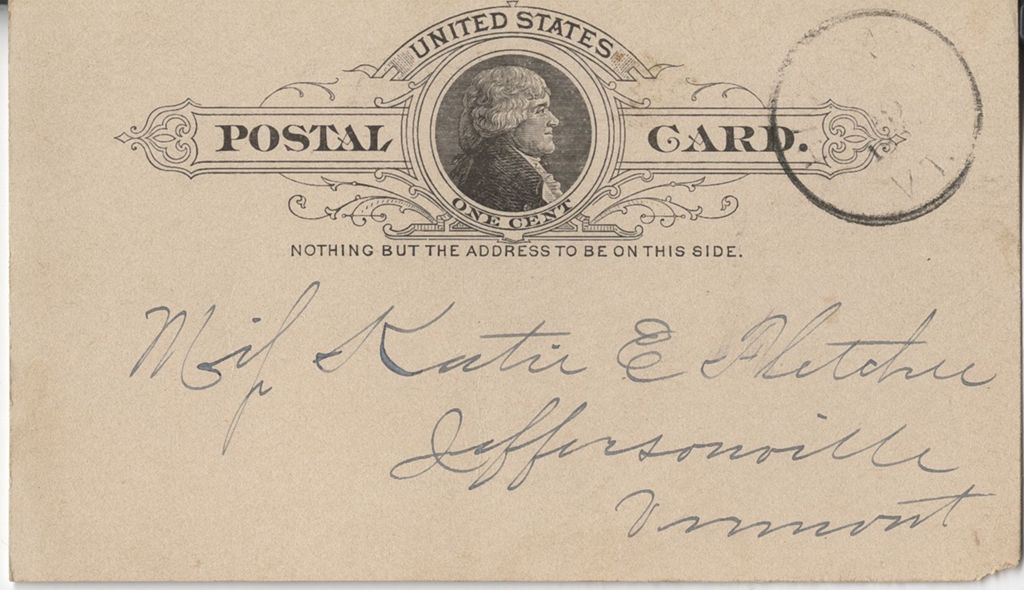 UNITED STATES
POSTAL CARD.
ONE CENT
NOTHING BUT THE ADDRESS TO BE ON THIS SIDE.
Miſs Katie E Fletcher
Jeffersonville
Vermont
VT.